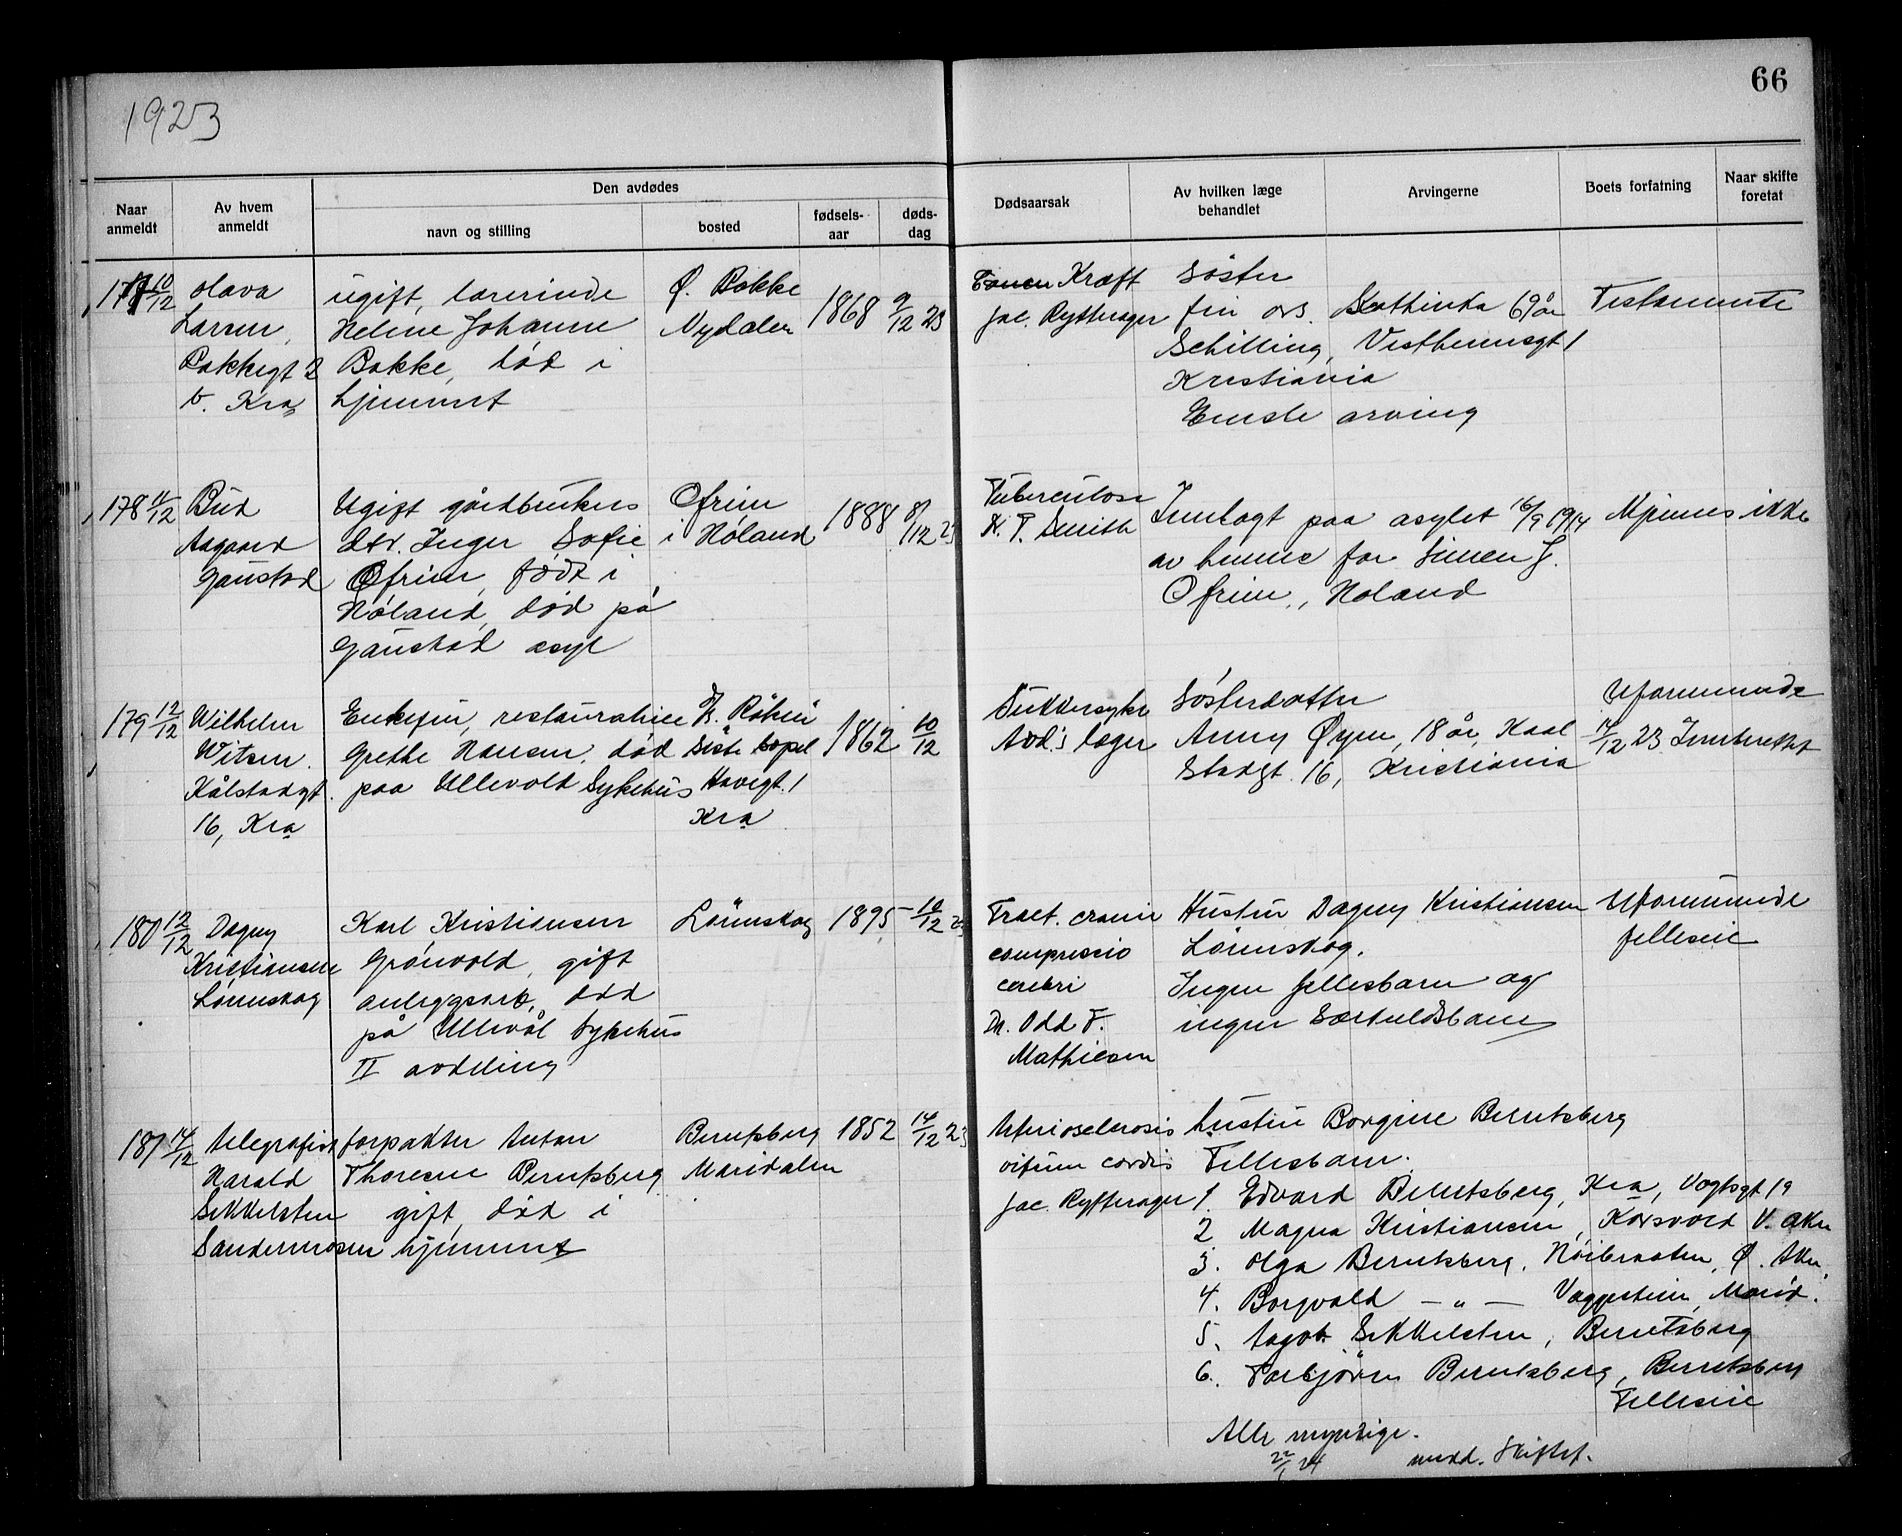 1923
66
Naar anmeldt
Av hvem anmeldt
Den avdødes
navn og stilling
bosted
fødsels-aar
døds-dag
Dødsaarsak
Av hvilken læge behandlet
Arvingerne
Boets forfatning
Naar skifte foretat
177 10/12
Olava
Larsen,
Bakkegt 2
b. Kra
ugift, lærerinde
Helene Johanne
Bakke, død i
hjemmet
Ø. Bakke
Nydalen
1868
9/12 23
Kræft
Jac. Rytterager
Søster
fru ovs. Kathinka 69 år
Schilling, Vestheimsgt 1
Kristiania
Eneste arving
Testamente
178 11/12
Bud
Aagaard
Gaustad
Ugift gårdbrukers
dtr. Inger Sofie
Ofrim, født i
Høland, død på
Gaustad asyl
Ofrim
i Høland
1888
8/12 23
Tuberculose
K. T. Smith
Inntagt paa asylet 16/9 1914
av hennes far Simen J.
Ofrim, Høland
Kjennes ikke
179 12/12
Wilhelm
Witsen.
Kålstadgt.
16, Kra
Enkefru, restauratrice
Grethe Hansen, død
paa Ullevold Sykehus
Siste bopel
Havegt. 1
Kra
1862
10/12
Sukkersyke
Avd's læger
Søsterdatter
Anny Øyen, 18 år, Kaal
stadgt. 16, Kristiania
Uformuende
14/12 23 Innberettet
180 12/12
Dagny
Kristiansen
Lørenskog
Karl Kristiansen
Grønvold, gift
anleggsarb, død
på Ullevål Sykehus
II avdeling
Lørenskog
1895
10/12 23
Fract. cranii
compressio
cerebri
Dr. Odd F.
Mathiesen
Hustru Dagny Kristiansen
Lørenskog.
Ingen fellesbarn og
ingen Særkuldsbarn
Uformuende
felleseie
181 14/12
telegrafist
Harald
Sikkelsten
Sandermosen
forpakter Anton
Thoresen Berntsberg
gift, død i
hjemmet
Berntsberg
Maridalen
1852
14/12 23
Arteriosclerosis
vitium cordis
Jac. Rytterager
hustru Borgine Berntsberg
Fellesbarn.
1. Edvard Berntsberg, Kra, Vogtsgt 19
2 Magna Kristiansen, Korsvold V. Aker
3. Olga Berntsberg, Nøibraaten, Ø. Aker,
4. Borgvald — " — Vaggestein, Marid.
5. Sikkelsten, Berntsberg
6. Torbjørn Berntsberg, Berntsberg
Felleseie
Alle myndige.
22/1 24 medd. Skiftef.